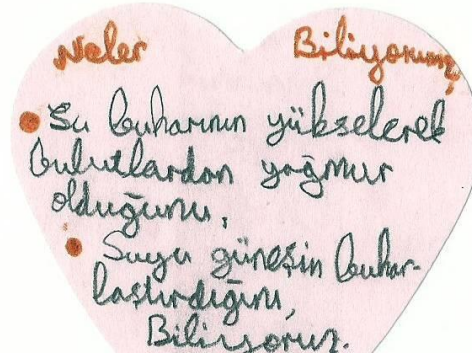 Neler Biliyoruz
• Su buharının yükselerek
bulutlardan yağmur
olduğunu,
• Suyu güneşin buhar-
laştırdığını,
Biliyoruz.